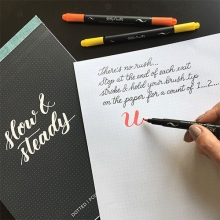 There's no rush...
Stop at the end of each exit
stroke & hold your brush tip
on the paper for a count of 1...2...
u
slow &
steady